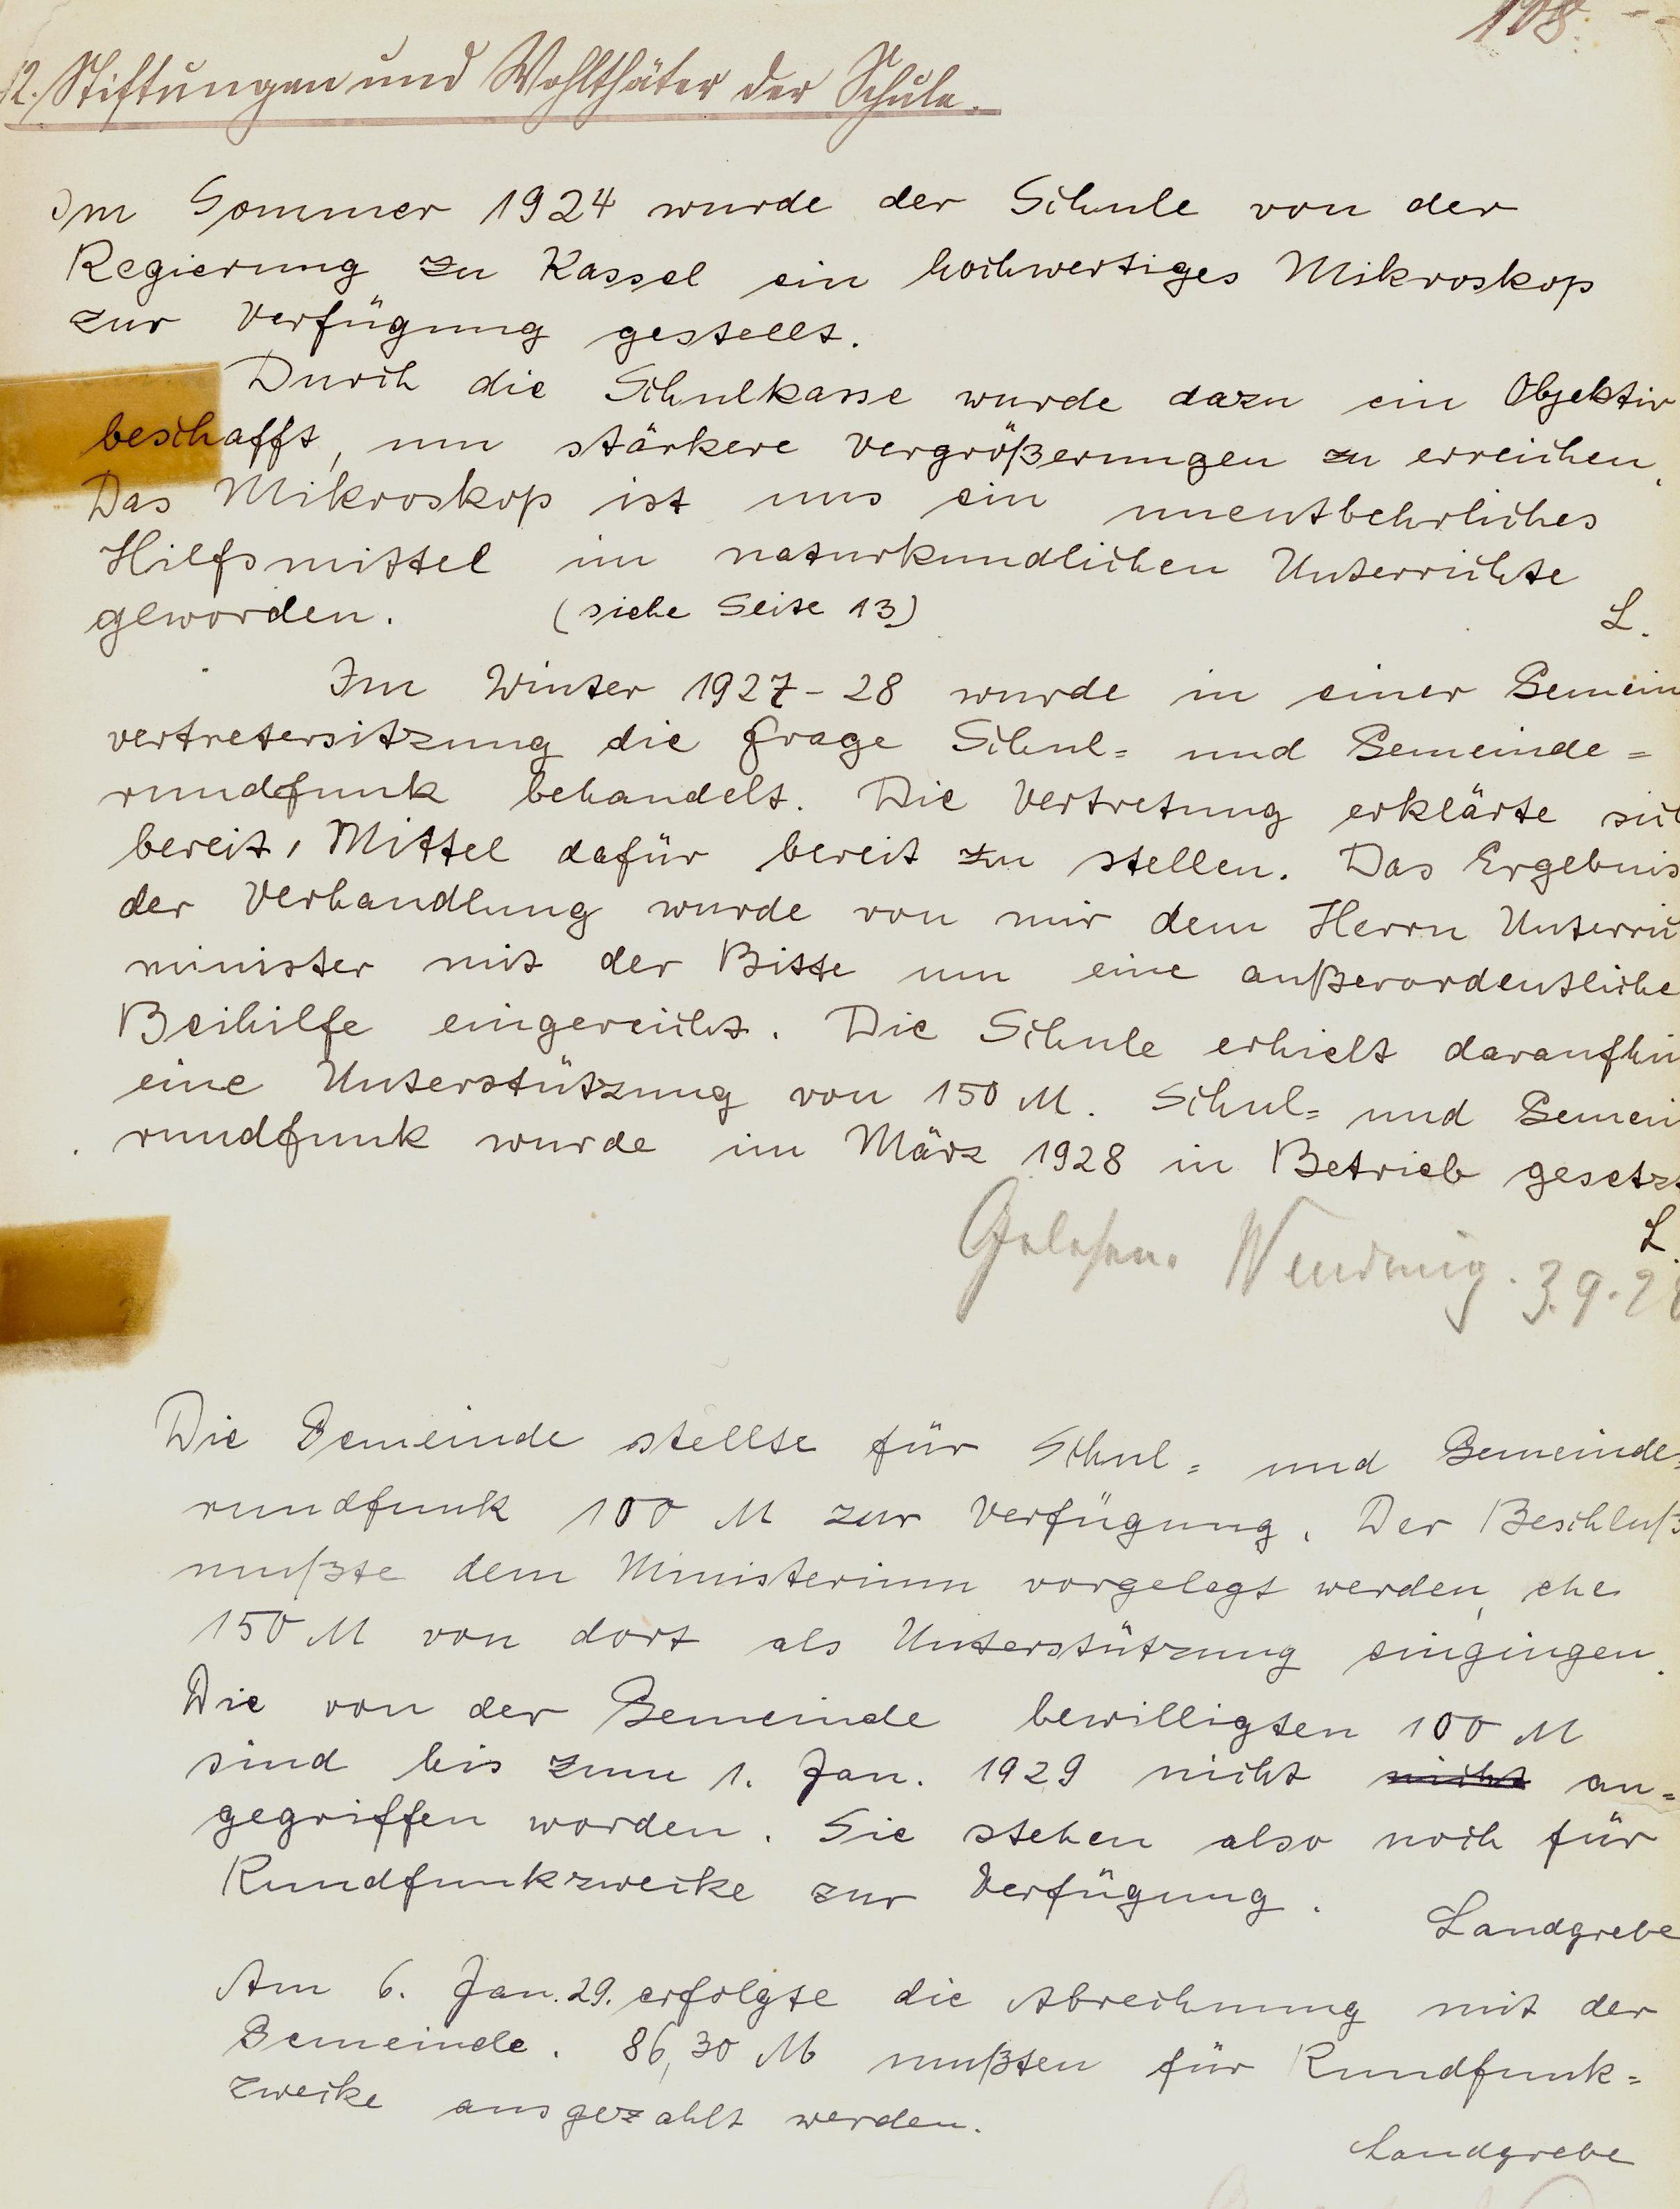 108.
12. Stiftungen und Wohlthäter der Schule.
Im Sommer 1924 wurde der Schule von der
Regierung zu Kassel ein hochwertiges Mikroskop
zur Verfügung gestellt.
Durch die Schulkasse wurde dazu ein Objektiv
beschafft, um stärkere Vergrößerungen zu erreichen.
Das Mikroskop ist uns ein unentbehrliches
Hilfsmittel im naturkundlichen Unterrichte
geworden. (siehe Seite 13)
L.
Im Winter 1927-28 wurde in einer Gemein
vertretersitzung die Frage Schul= und Gemeinde=
rundfunk behandelt. Die Vertretung erklärte sich
bereit, Mittel dafür bereit zu stellen. Das Ergebnis
der Verhandlung wurde von mir dem Herrn Unterri
minister mit der Bitte um eine außerordentliche
Beihilfe eingereicht. Die Schule erhielt daraufhin
eine Unterstützung von 150 M. Schul= und Gemein
rundfunk wurde im März 1928 in Betrieb gesetzt
L.
Gelesen. 3.9.28
Die Gemeinde stellte für Schul= und Gemeinde=
rundfunk 100 M zur Verfügung. Der Beschluß
mußte dem Ministerium vorgelegt werden, ehe
150 M von dort als Unterstützung eingingen.
Die von der Gemeinde bewilligten 100 M
sind bis zum 1. Jan. 1929 nicht nicht an=
gegriffen worden. Sie stehen also noch für
Rundfunkzwecke zur Verfügung.
Landgrebe
Am 6. Jan. 29. erfolgte die Abrechnung mit der
Gemeinde. 86,30 M mußten für Rundfunk=
zwecke ausgezahlt werden.
Landgrebe